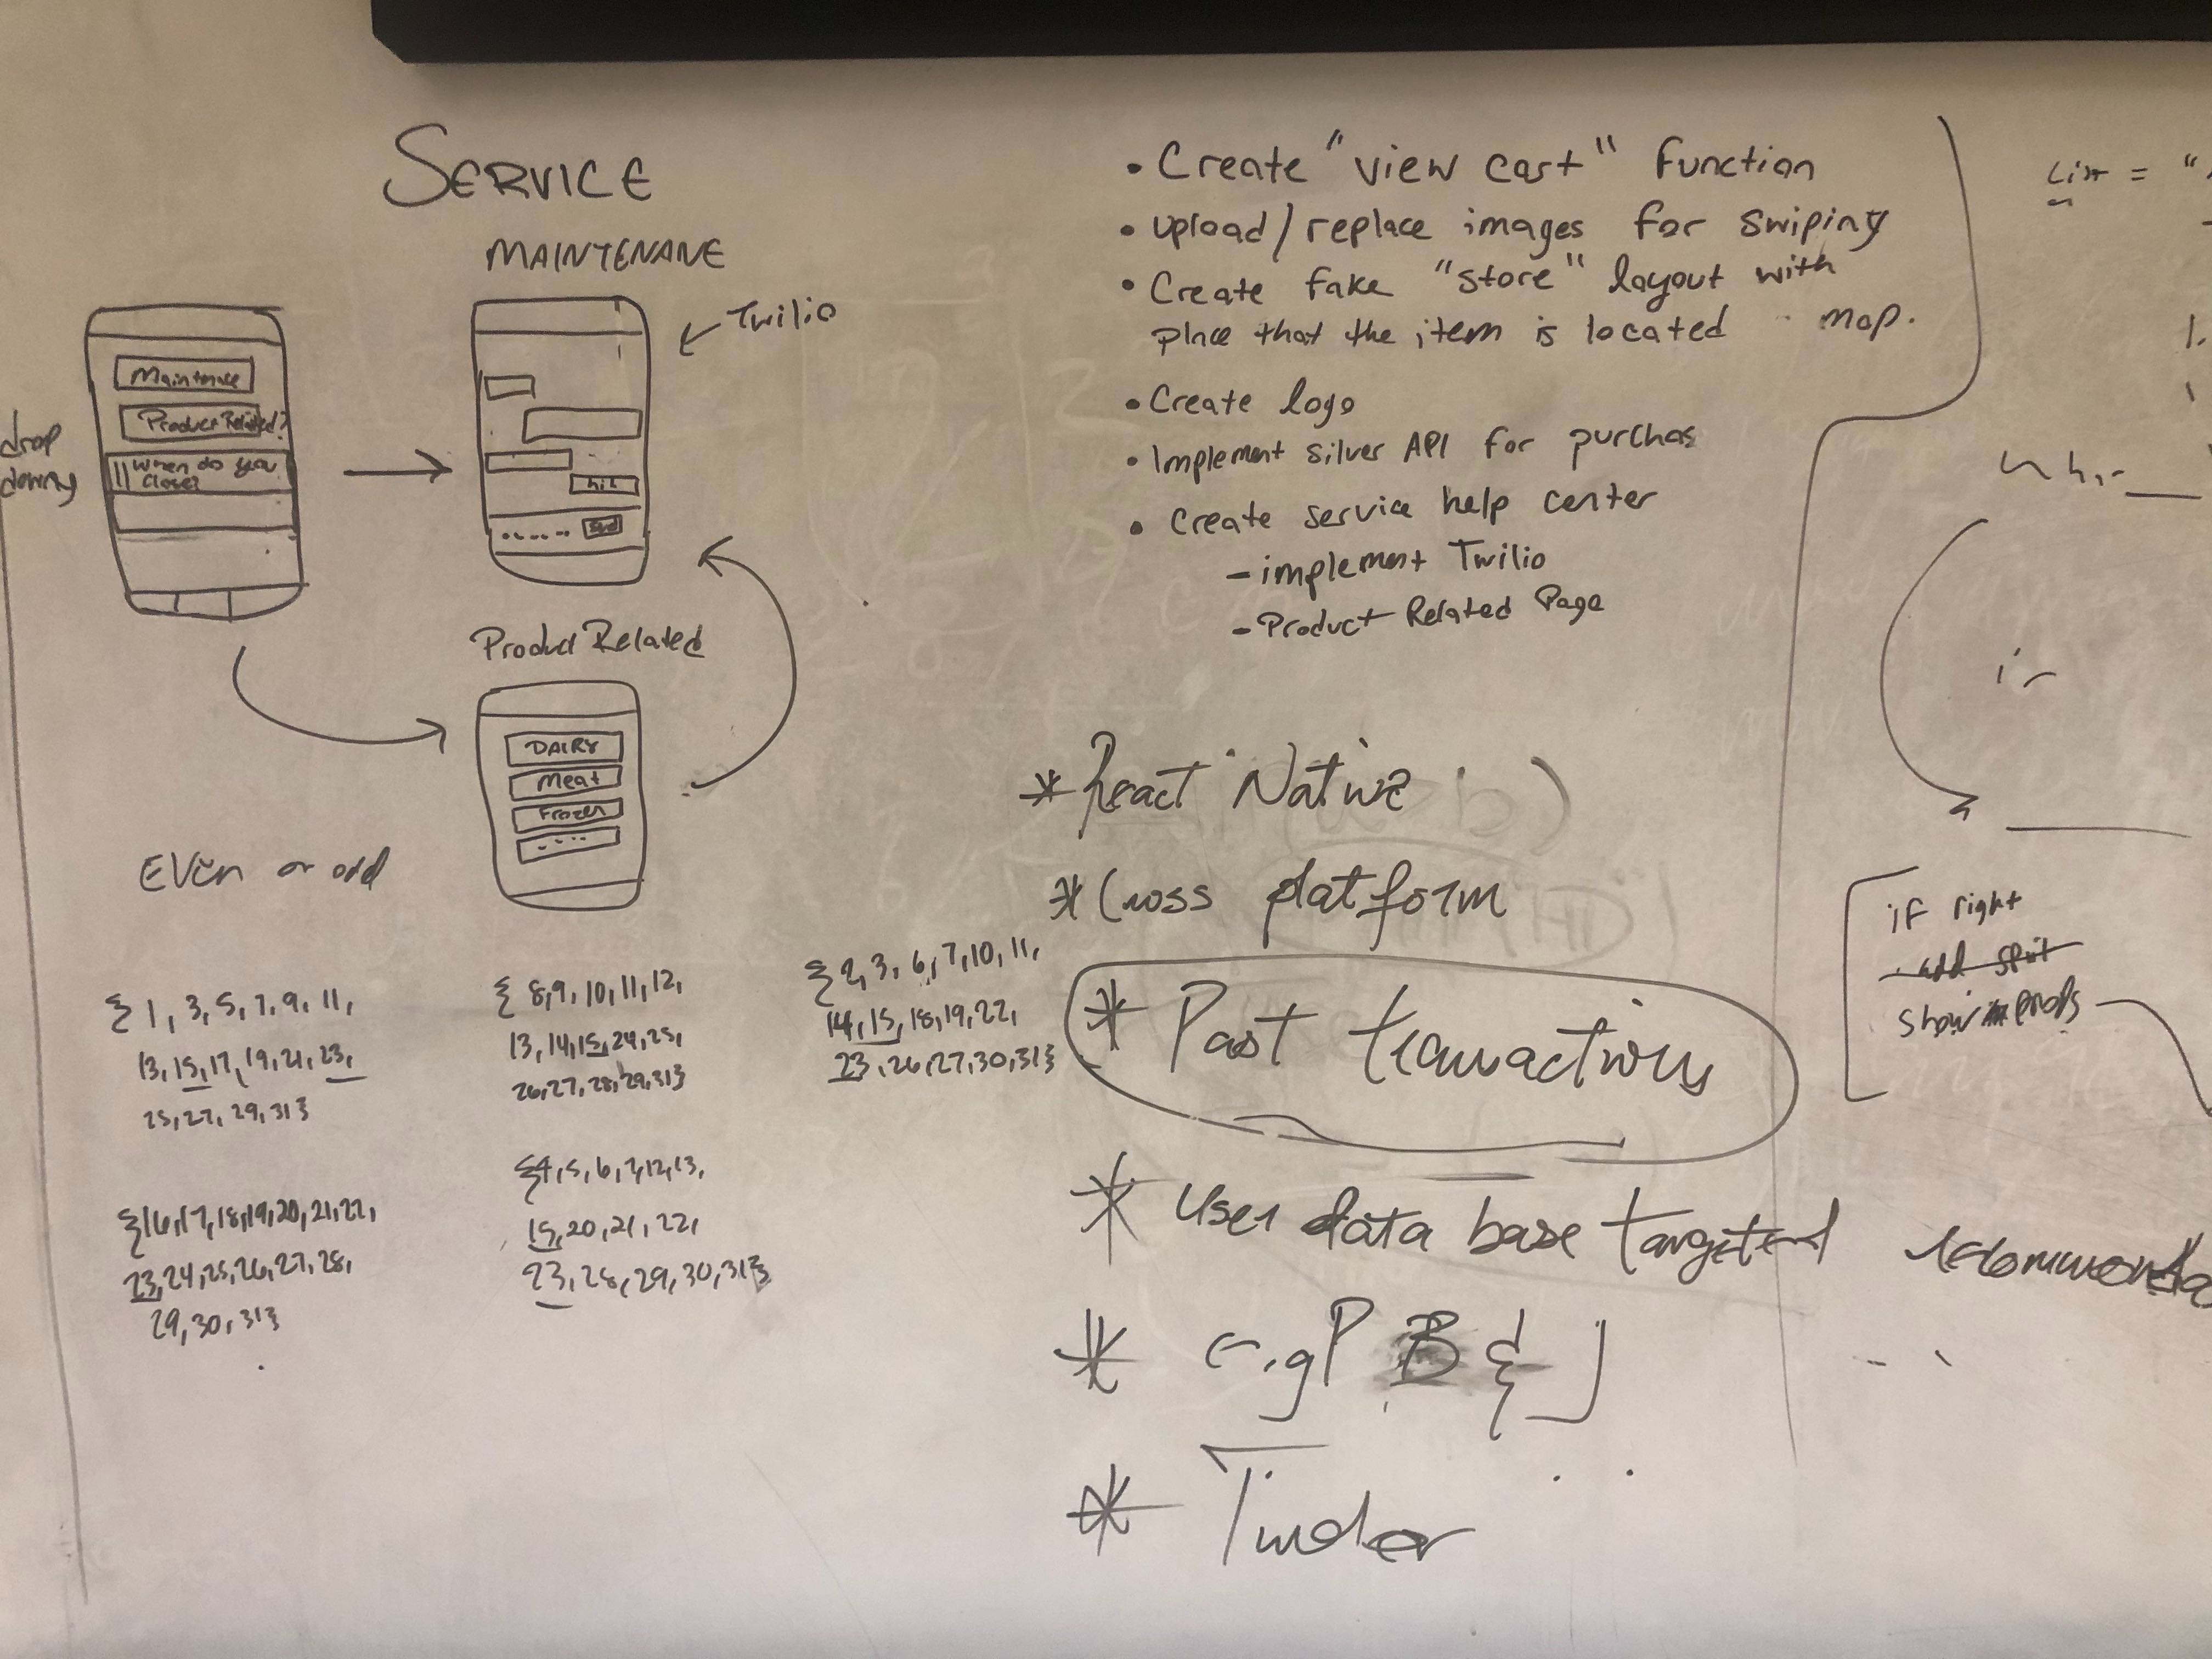 SERVICE
MAINTENANE
Twilio
drop
downs
Maintenace
Product Related?
When do you
close?
hih
Send
Product Related
DAIRY
Meat
Frozen
....
Even or odd
{1, 3, 5, 7, 9, 11,
13, 15, 17, 19, 21, 23,
25, 27, 29, 31}
{8, 9, 10, 11, 12,
13, 14, 15, 24, 25,
26, 27, 28, 29, 31}
{2, 3, 6, 7, 10, 11,
14, 15, 18, 19, 22,
23, 26, 27, 30, 31}
{16, 17, 18, 19, 20, 21, 22,
23, 24, 25, 26, 27, 28,
29, 30, 31}
{4, 5, 6, 7, 12, 13,
15, 20, 21, 22,
23, 28, 29, 30, 31}
• Create "view cart" function
• upload/replace images for swiping
• Create fake "store" layout with
place that the item is located map.
• Create logo
• Implement Silver API for purchas
• Create service help center
- implement Twilio
- Product Related Page
* React Native
* Cross platform
* Past transactions
* User data base targeted
* e.g P B & J
* Tinder
List = "
1.
if right
add spit
show props